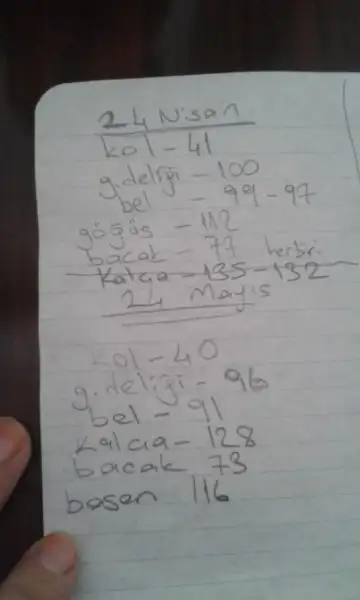 24 Nisan
kol - 41
g.deliği - 100
bel - 99-97
göğüs - 112
bacak - 77 herbiri
Kalça - 135-132
24 Mayıs
kol - 40
g.deliği - 96
bel - 91
Kalça - 128
bacak 73
basen 116